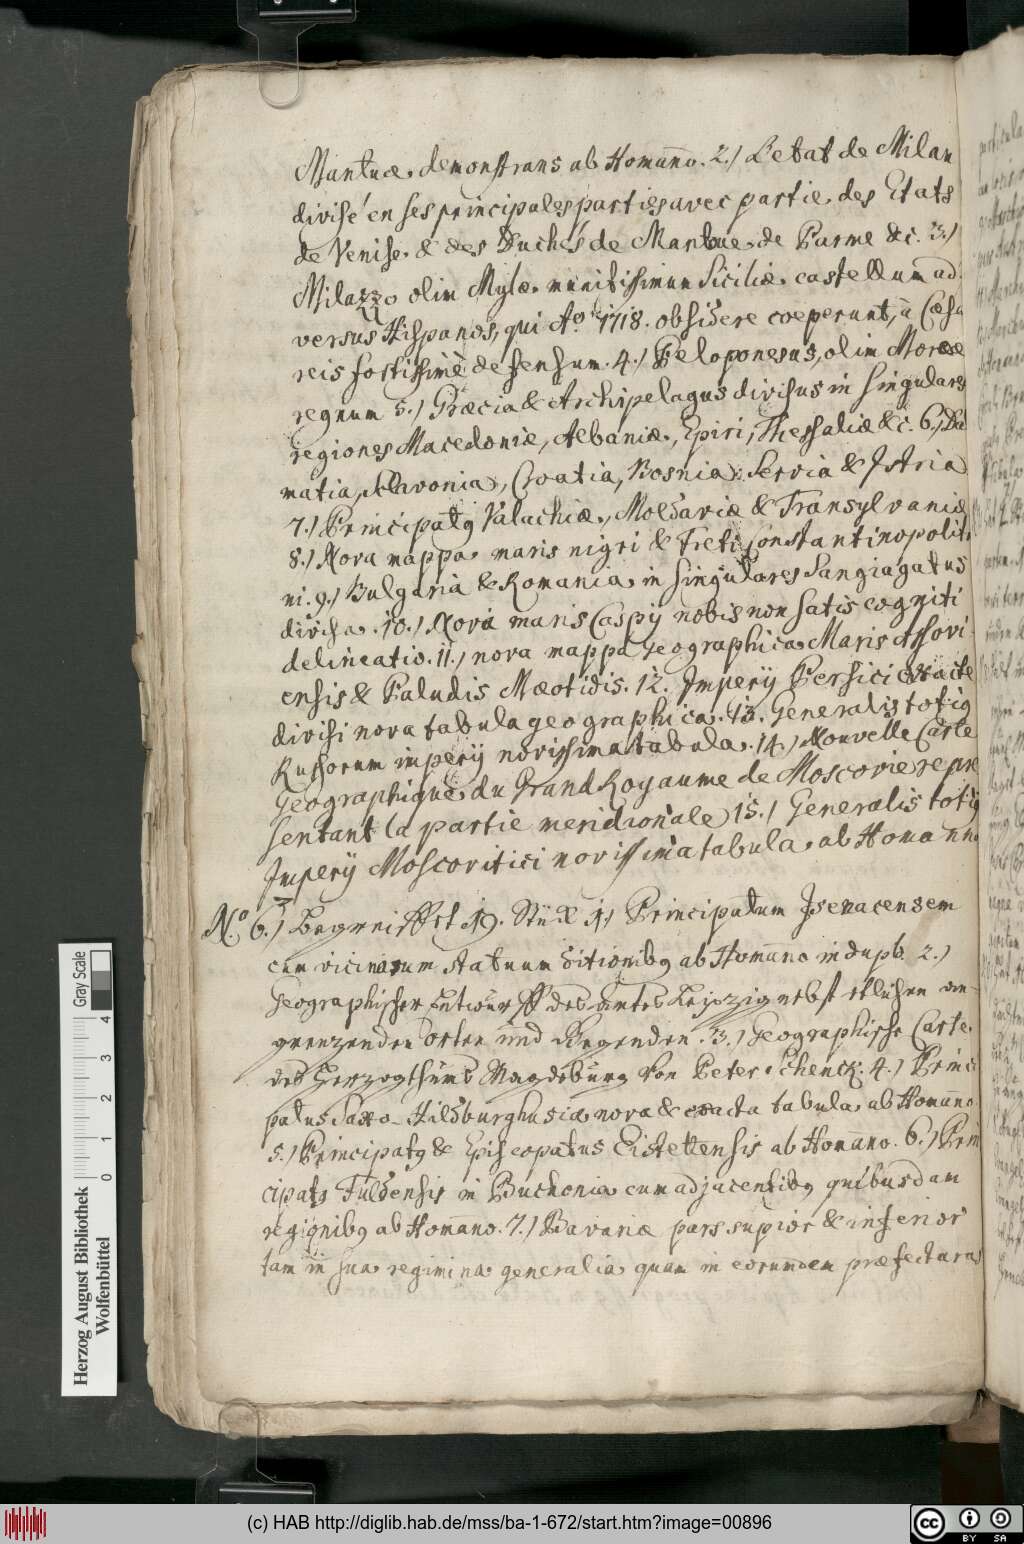 Mantuæ demonstrans ab Homanno. 2.) L'etat de Milan
divisé en ses principales parties avec partie des Etats
de Venise & des Duchés de Mantoue de Parme &c. 3.)
Milazzo olim Mylæ munitissimum Siciliæ castellum ad
versus Hispanos, qui Ao 1718. obsidere coeperunt, à Cæsa
reis fortissimè defensum. 4.) Peloponesus, olim Moreæ
regnum 5.) Græcia & Archipelagus divisus in singulares
regiones Macedoniæ, Albaniæ, Epiri, Thessaliæ &c. 6.) Dal
matia, Slavonia, Croatia, Bosnia, Servia & Istria
7.) Principatq Valachiæ, Moldaviæ & Transylvaniæ
8.) Nova mappa maris nigri & Freti Constantinopolita
ni. 9.) Bulgaria & Romania in singulares Sangiagatus
divisa. 10.) Nova maris Caspij nobis non satis cogniti
delineatio. 11.) nova mappa geographica Maris Assovi-
ensis & Paludis Mæotidis. 12. Imperij Persici exacte
divisi nova tabula geographica. 13. Generalis totiq
Russorum imperij novissima tabula. 14.) Nouvelle Carte
Geographique du Grand Royaume de Moscovie repre
sentant la partie meridionale 15.) Generalis totiq
Imperij Moscovitici novissima tabula ab Homanno
No. 6.) Begreifft 19. Stück 1.) Principatum Isenacensem
cum vicinorum statuum ditionibq ab Homanno in dupl. 2.)
Geographischer Entwurff des Amtes Leipzig nebst etlichen an-
grenzenden orten und Gegenden. 3.) Geographische Carte
des Herzogthums Magdeburg von Peter Schenck. 4.) Princi
patus Saxo-Hildburghusiæ nova & exacta tabula ab Homanno
5.) Principatq & Episcopatus Eistettensis ab Homanno. 6.) Prin
cipatq Fuldensis in Buchonia cum adjacentibq quibusdam
regionibq ab Homanno. 7.) Bavariæ pars supior & inferior
tam in sua regimina generalia quam in eorumdem præfecturas
Herzog August Bibliothek
Wolfenbüttel
Gray Scale
0 1 2 3 4
(c) HAB http://diglib.hab.de/mss/ba-1-672/start.htm?image=00896
cc BY SA